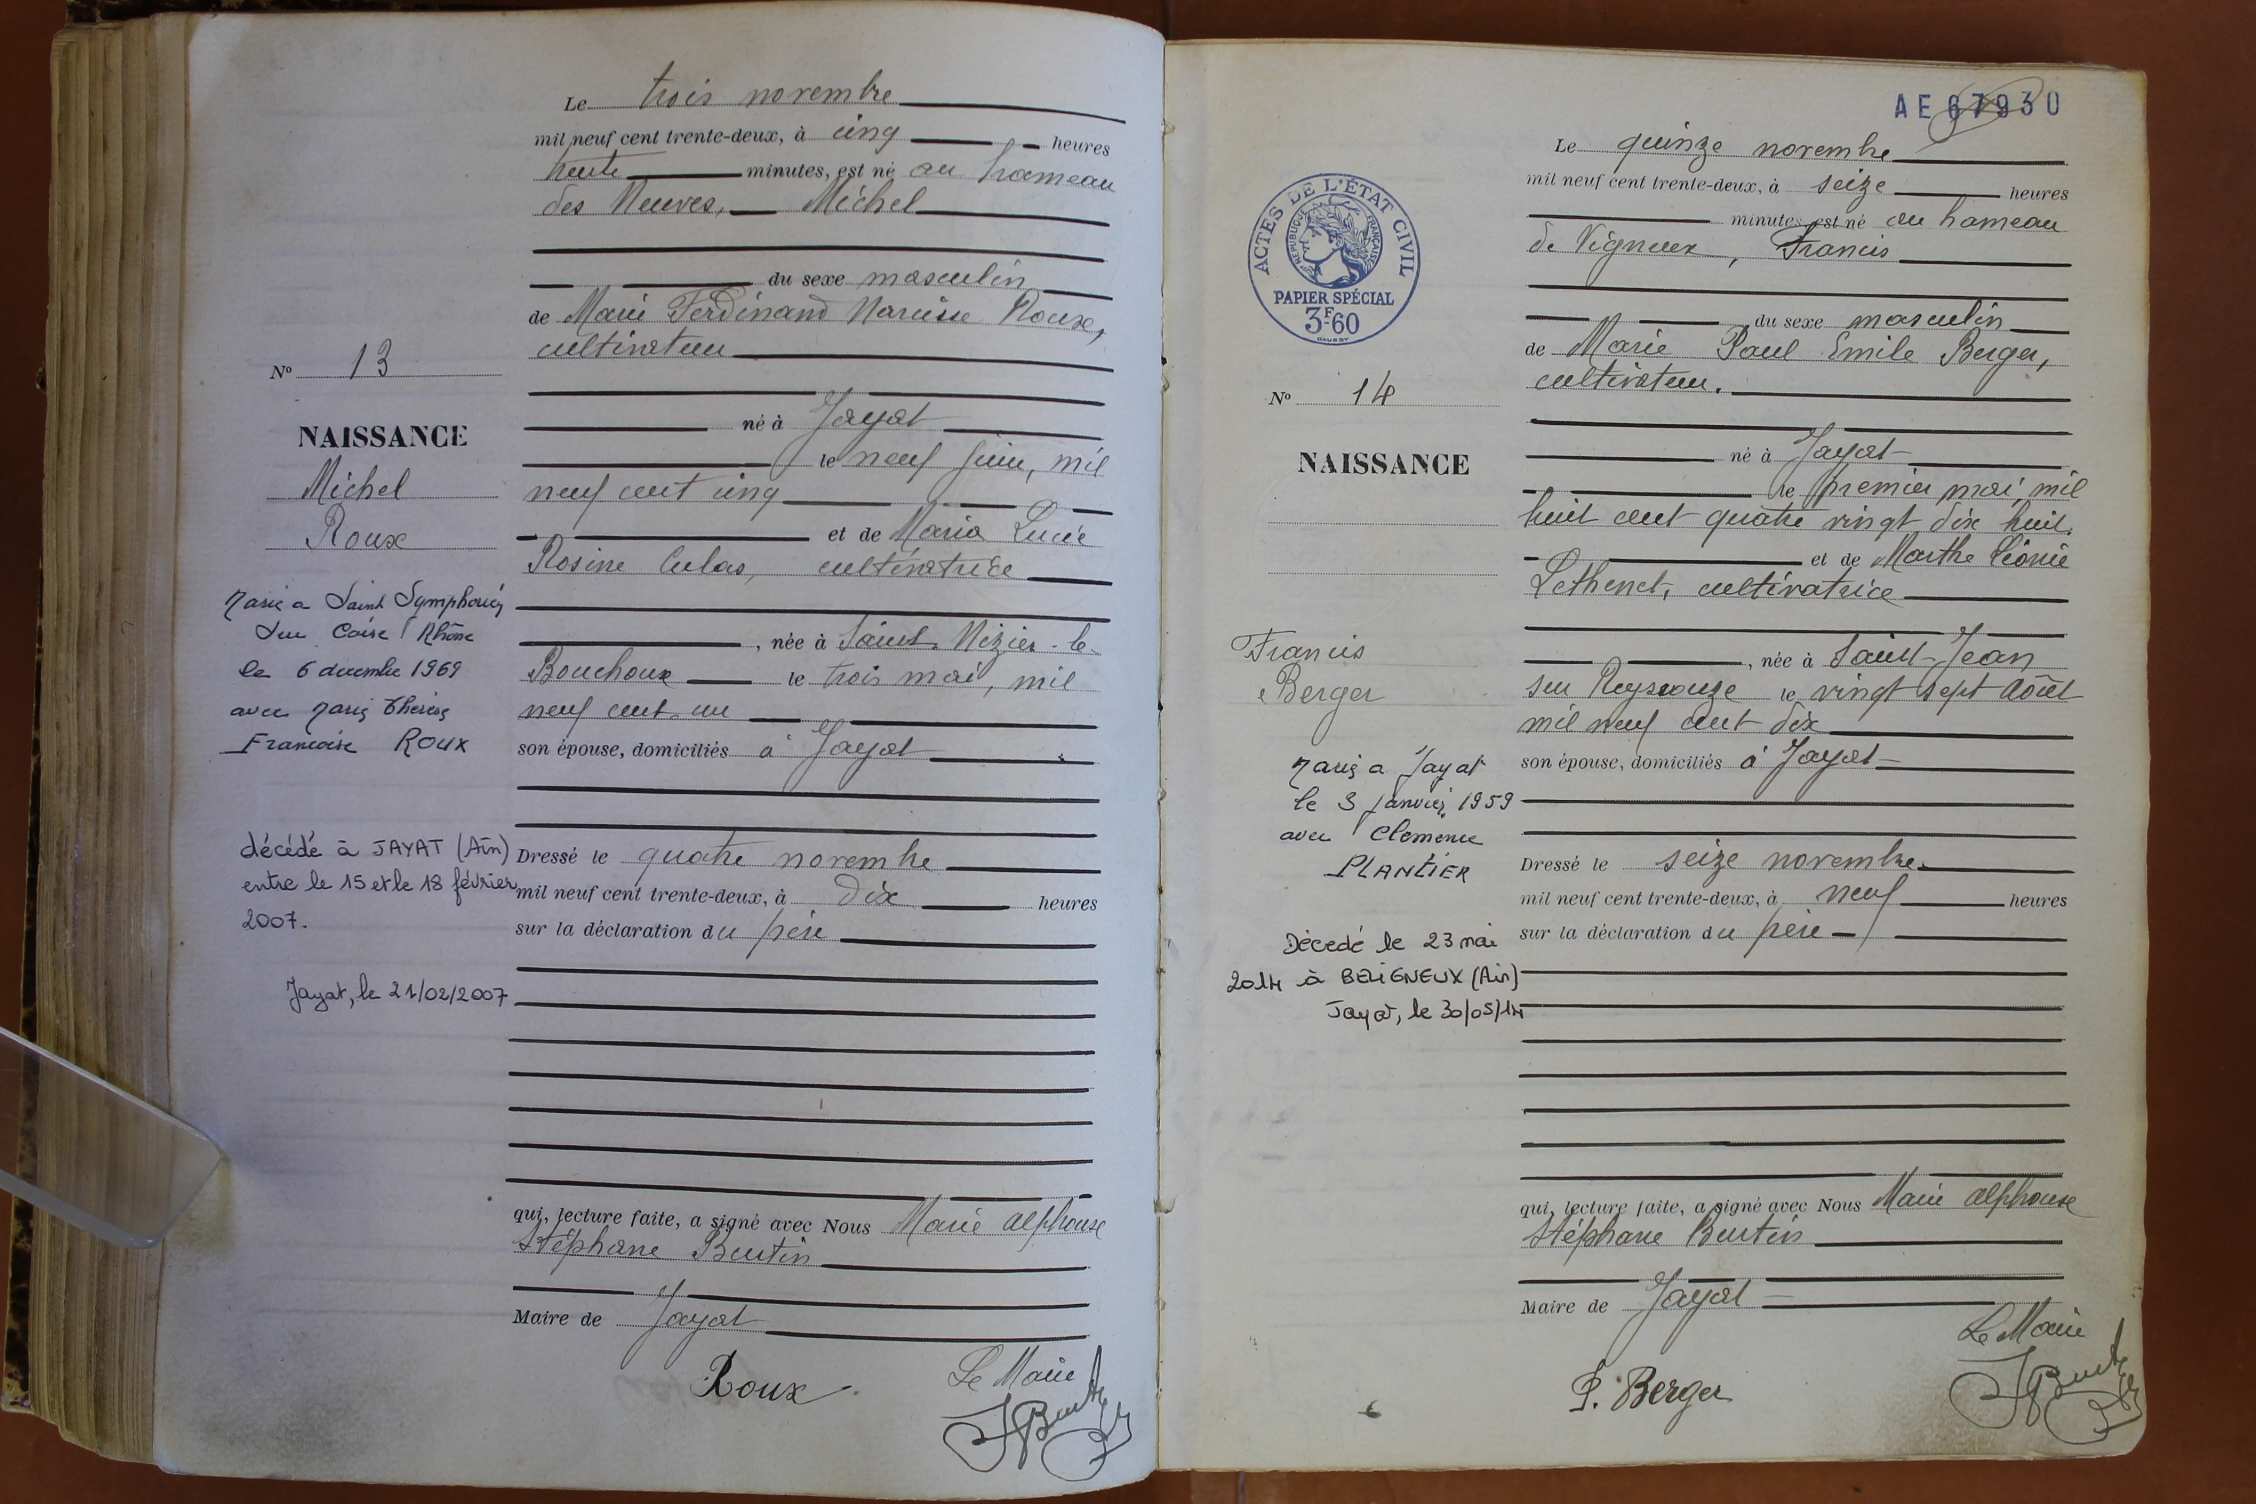 Le trois novembre
mil neuf cent trente-deux, à cinq heures
trente minutes, est né au hameau
des Neuves, Michel
du sexe masculin
de Marie Ferdinand Narcisse Roux,
cultivateur
né à Jayat
le neuf juin, mil
neuf cent cinq
et de Maria Lucie
Rosine Culas, cultivatrice
, née à Saint-Nizier-le-
Bouchoux le trois mai, mil
neuf cent un
son épouse, domiciliés à Jayat
Dressé le quatre novembre
mil neuf cent trente-deux, à dix heures
sur la déclaration du père
qui, lecture faite, a signé avec Nous Marie Alphonse
Stéphane Burtin
Maire de Jayat
Roux
Le Maire
No 13
NAISSANCE
Michel
Roux
Marié a Saint Symphorien
sur Coise Rhône
le 6 decembre 1969
avec Marie Thérèse
Francoise ROUX
décédé à JAYAT (Ain)
entre le 15 et le 18 février
2007.
Jayat, le 21/02/2007
AE 67930
ACTES DE L'ÉTAT CIVIL
RÉPUBLIQUE FRANÇAISE
PAPIER SPÉCIAL
3F60
Le quinze novembre
mil neuf cent trente-deux, à seize heures
minutes est né au hameau
de Vigneux, Francis
du sexe masculin
de Marie Paul Emile Berger,
cultivateur.
né à Jayat
le premier mai, mil
huit cent quatre vingt dix huit.
et de Marthe Léonie
Lethenet, cultivatrice
, née à Saint-Jean
sur Reyssouze le vingt sept Août
mil neuf cent dix
son épouse, domiciliés à Jayat
Dressé le seize novembre
mil neuf cent trente-deux, à neuf heures
sur la déclaration du père
qui, lecture faite, a signé avec Nous Marie Alphonse
Stéphane Burtin
Maire de Jayat
Le Maire
P. Berger
No 14
NAISSANCE
Francis
Berger
Marié a Jayat
le 3 janvier 1959
avec Clemence
PLANTIER
Décédé le 23 mai
2014 à BELIGNEUX (Ain)
Jayat, le 30/05/14